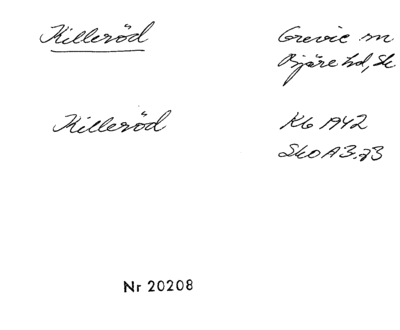 Killeröd
Grevie sn
Bjäre hd, Sk
Killeröd
Kb 1942
SkO A3:73
Nr 20208